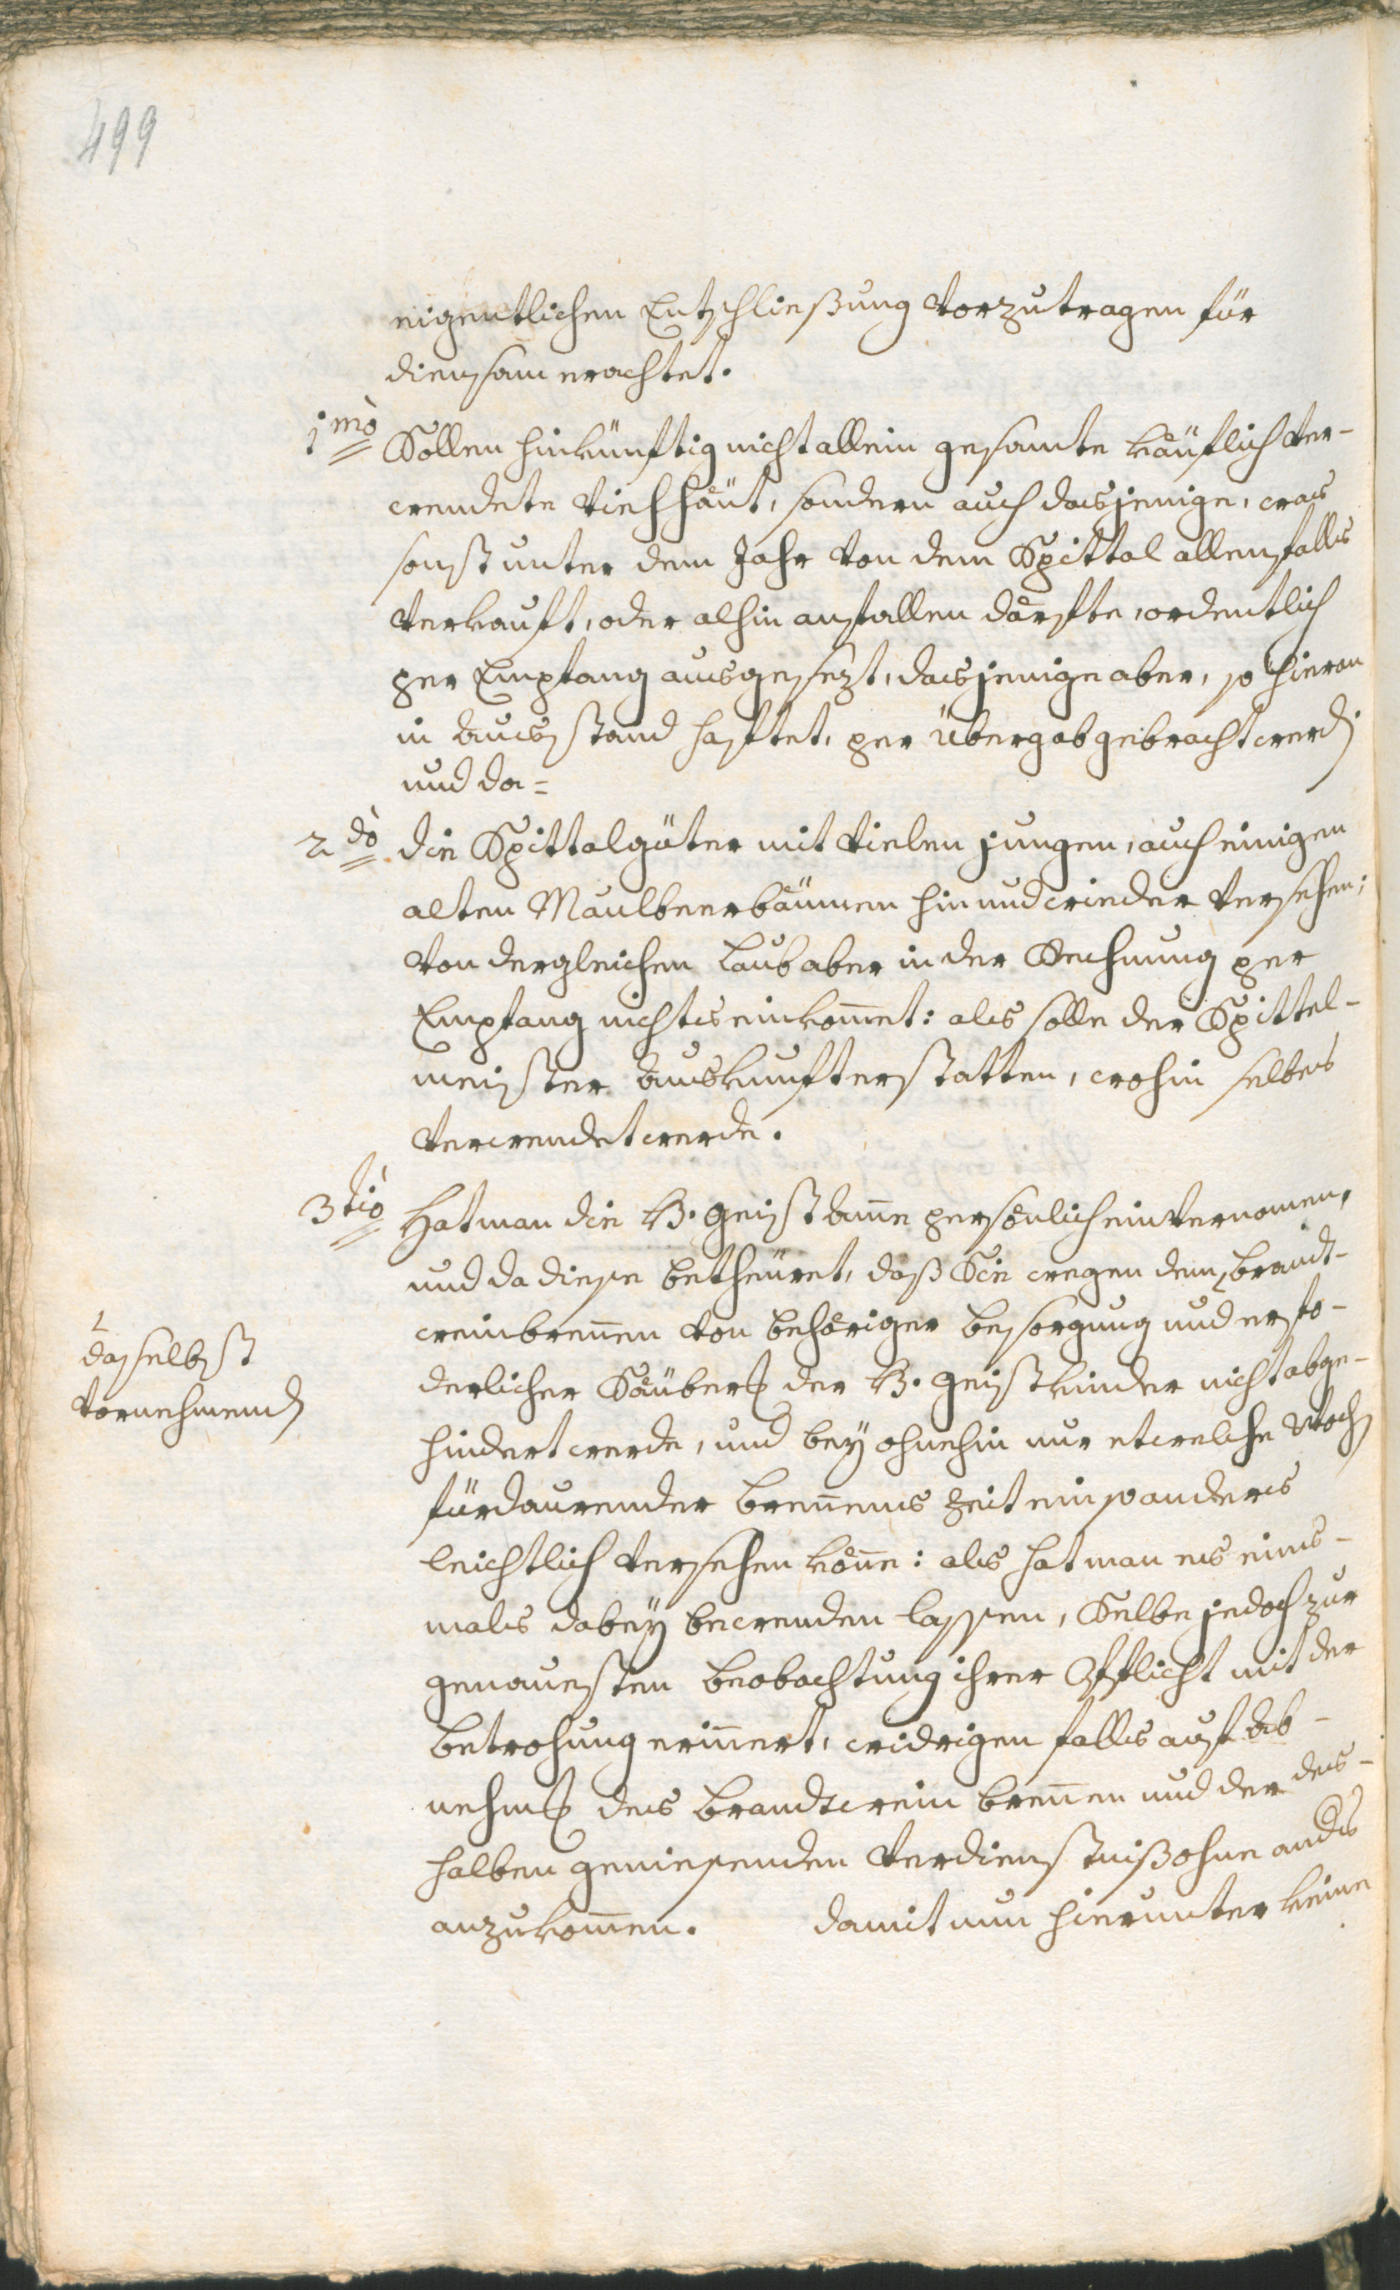 499
eigentlichen Entschließung vorzutragen für
diensam erachtet.
1mò Sollen hinkünftig nicht allein gesamte käuflich ver-
wendete Viehhäut, sondern auch dasjenige, was
sonst unter dem Jahr von dem Spittal allenfalls
verkauft, oder alhin anfallen därfte, ordentlich
per Empfang ausgesezt, dasjenige aber, so hieran
in Ausstand haftet, per Übergab gebracht werdn.
und da=
2dò die Spittalgüter mit vielen jungen, auch einigen
alten Maulbeerbäumen hin und wieder versehen;
von dergleichen Laub aber in der Rechnung per
Empfang nichts einkom̄et: als solle der Spittel-
meister Auskunft erstatten, wohin selbes
verwendet werde.
3tiò Hat man die H. Geist Am̄e persönlich einvernomen,
und da diese betheüret, daß Sie wegen dem Brandt-
weinbren̄en von behöriger Besorgung und erfo-
derlicher Säuberg der H. Geistkinder nicht abge-
hindert werde, und bey ohnehin nur etwelche Wochn
fürdaurender Bren̄ens Zeit ein so anderes
leichtlich versehen kön̄e: als hat man es eins-
mals dabey bewenden lassen, Selbe jedoch zur
genauesten Beobachtung ihrer Pflicht mit der
Betrohung erin̄ert, widrigen falls auf Ab-
nehmg des Brandtwein bren̄en und der des-
halben geniesenden Verdienstniß ohne anders
anzukom̄en. Damit nun hierunter keine
daselbst
vornehmendn